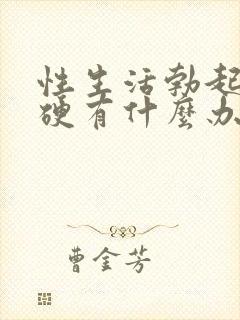 性生活勃起
硬有什麼办
曹金芳